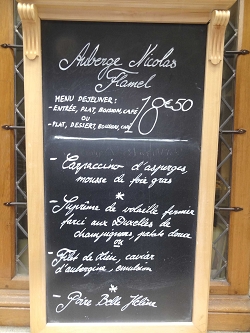 Auberge Nicolas
Flamel
MENU DEJEUNER :
- ENTRÉE, PLAT, BOISSON, CAFÉ
OU
- PLAT, DESSERT, BOISSON, CAFÉ
18€50
- Cappuccino d'asperges,
mousse de foie gras
*
- Suprême de volaille fermier
farci aux Duxelles de
champignons, patate douce
ou
- Filet de Lieu, caviar
d'aubergine, emulsion
*
- Poire Belle Hélène